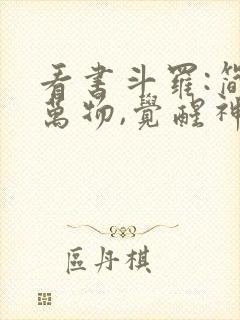 看書斗羅:簡
萬物,覺醒神
區丹棋